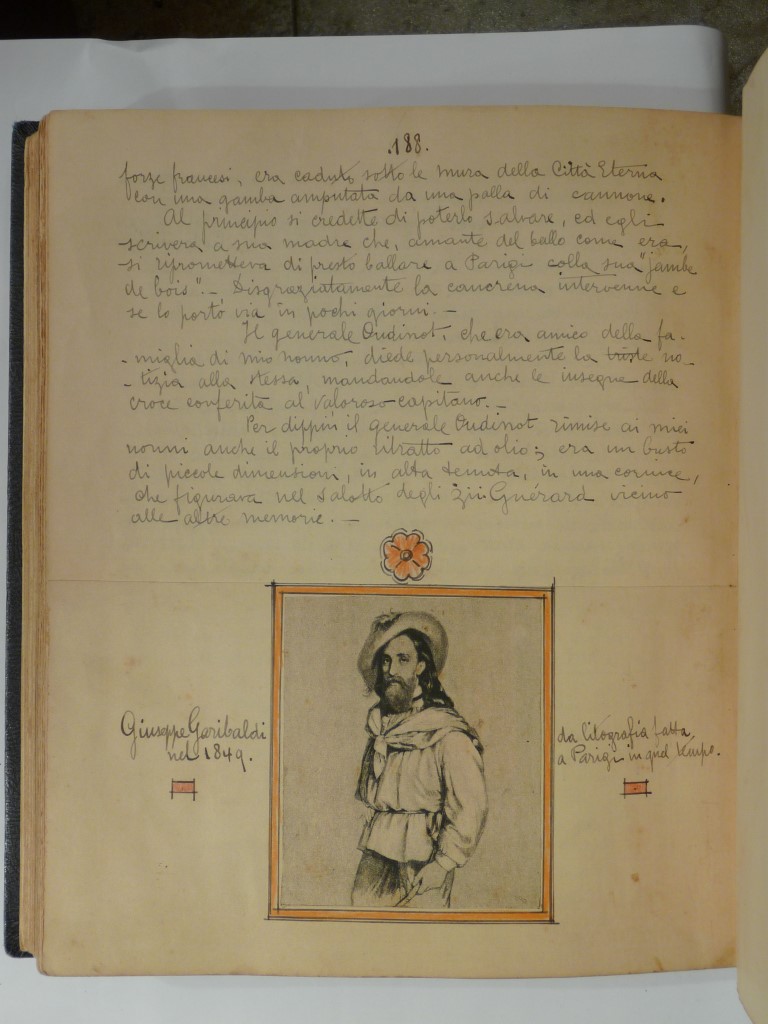 .188.
forze francesi, era caduto sotto le mura della Città Eterna
con una gamba amputata da una palla di cannone.
Al principio si credette di poterlo salvare, ed egli
scriveva a sua madre che, amante del ballo come era,
si riprometteva di presto ballare a Parigi colla sua "jambe
de bois". — Disgraziatamente la cancrena intervenne e
se lo portò via in pochi giorni. —
Il generale Oudinot, che era amico della fa-
- miglia di mio nonno, diede personalmente la triste no-
- tizia alla stessa, mandandole anche le insegne della
croce conferita al valoroso capitano. —
Per dippiù il generale Oudinot rimise ai miei
nonni anche il proprio ritratto ad olio; era un busto
di piccole dimensioni, in alta tenuta, in una cornice,
che figurava nel salotto degli zii Guérard vicino
alle altre memorie. —
Giuseppe Garibaldi
nel 1849.
da litografia fatta
a Parigi in quel tempo.